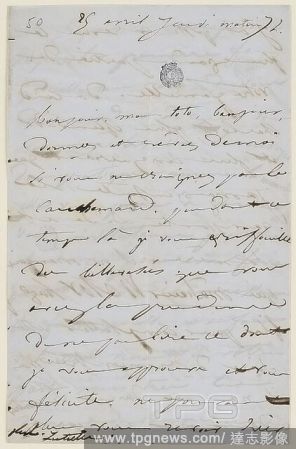 50 25 avril Jeudi matin 7 h.
Bonjour, mon toto, bonjour,
dormez et rêvez de moi
si vous ne craignez pas le
cauchemard. pendant ce
temps là je vous griffouille
des litteratés que vous
avez la prudence
de ne pas lire ce dont
je vous approuve et vous
félicite ne
vous
TPG
www.tpgnews.com / 達志影像